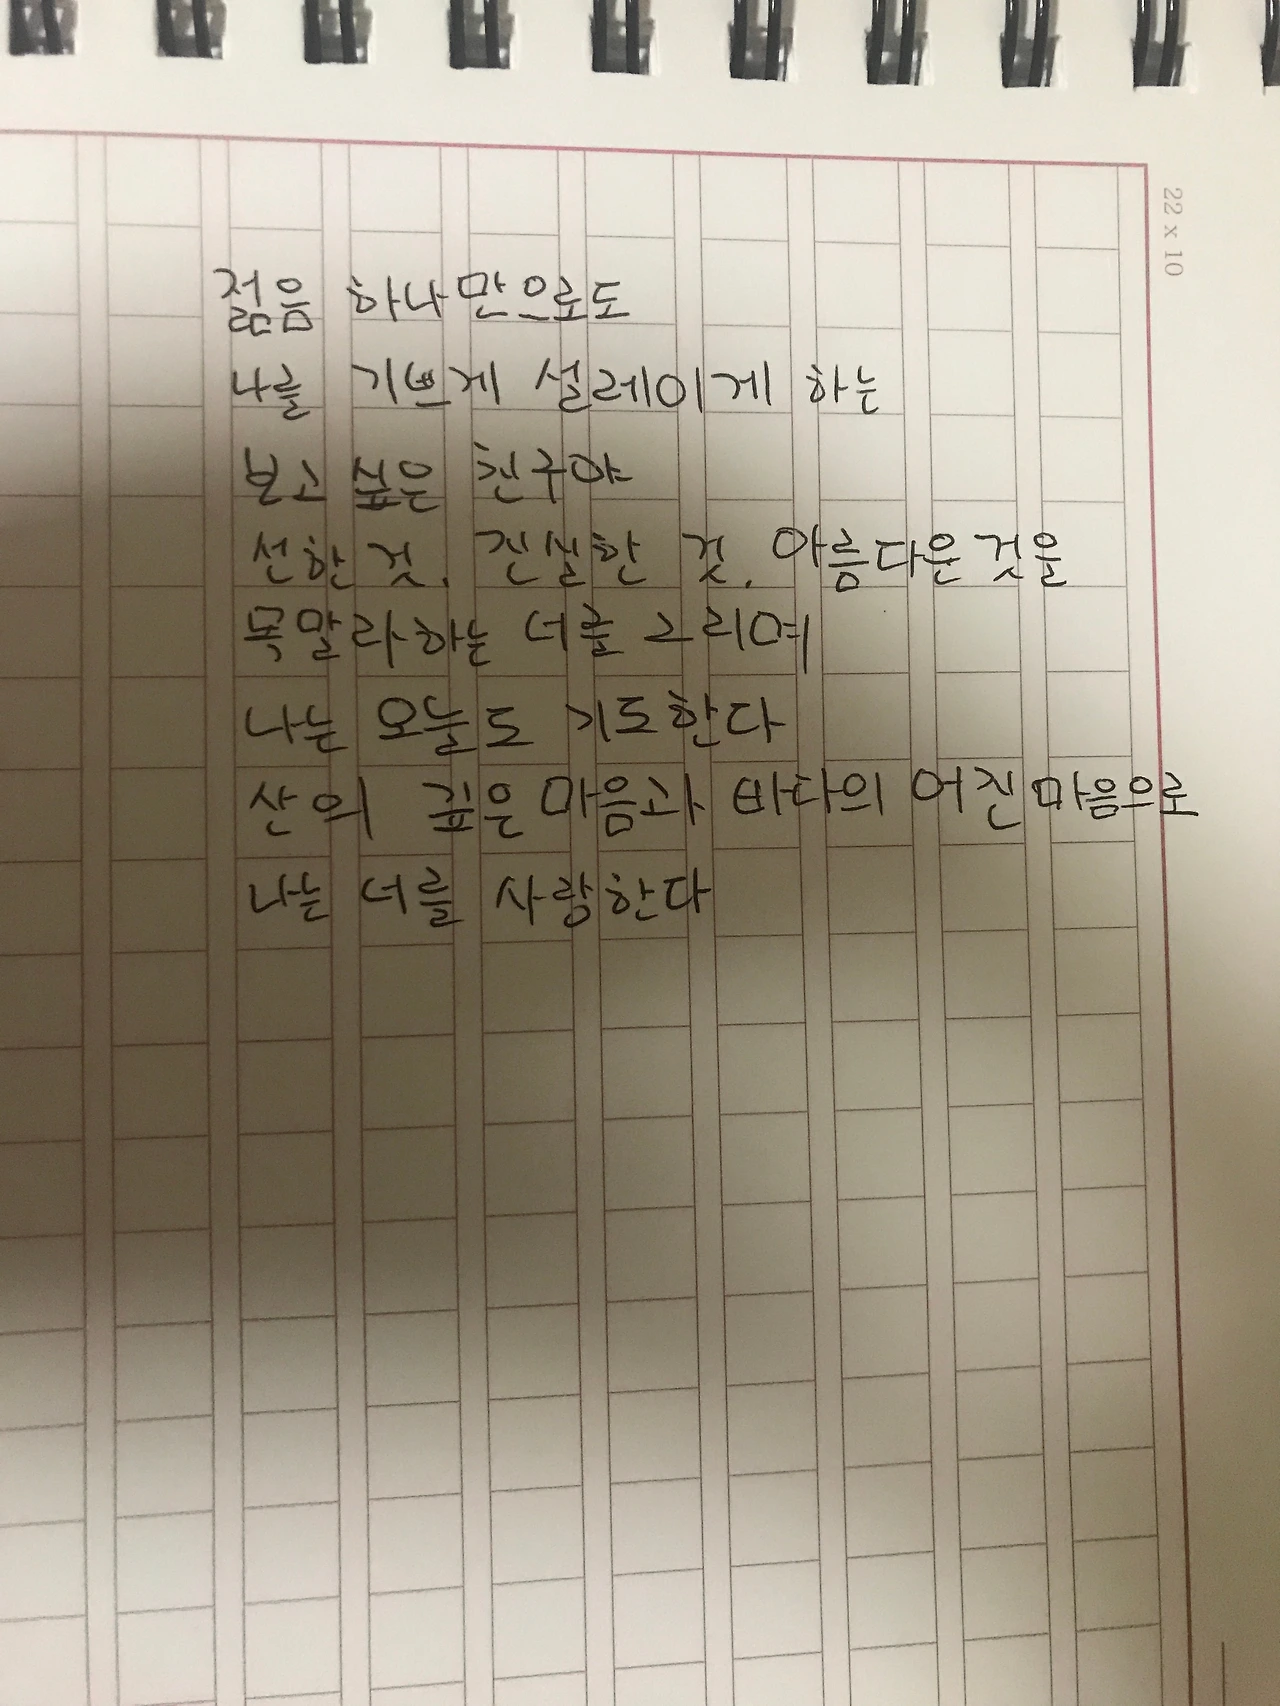 젊음 하나만으로도
나를 기쁘게 설레이게 하는
보고 싶은 친구야
선한 것, 진실한 것, 아름다운 것을
목말라하는 너를 그리며
나는 오늘도 기도한다
산의 깊은 마음과 바다의 어진 마음으로
나는 너를 사랑한다
22 x 10